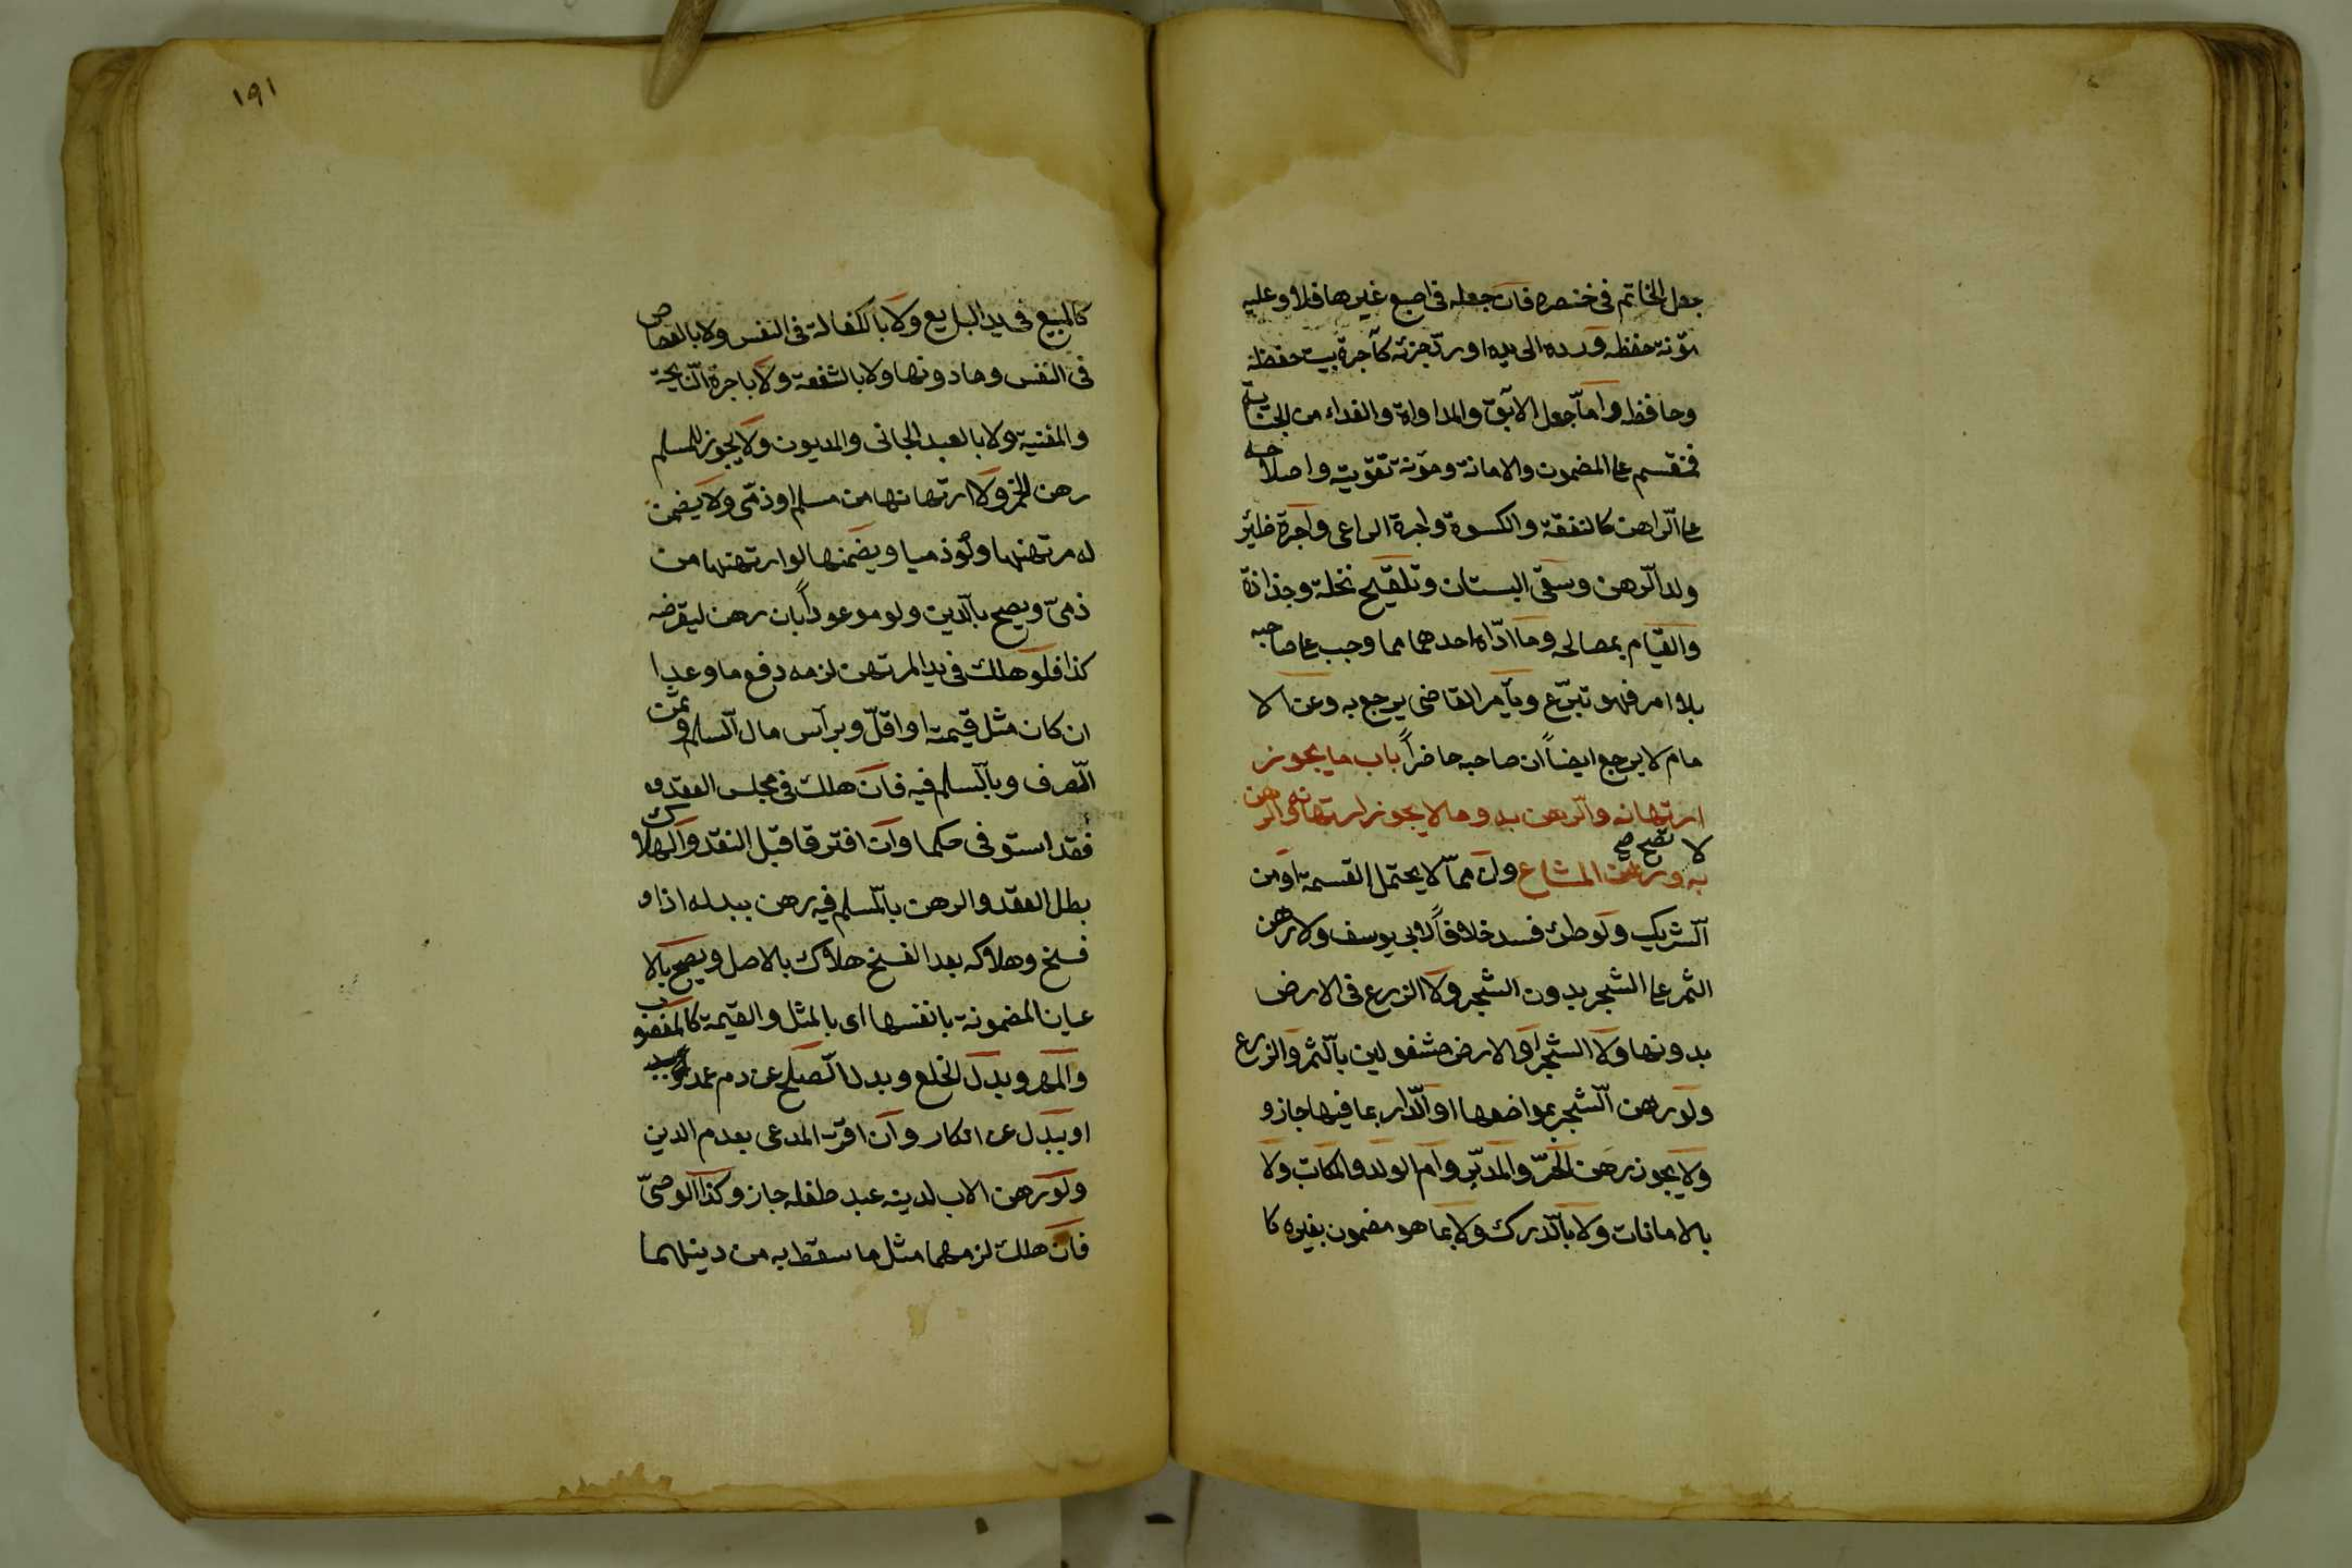 جعل الخاتم فى خنصره فان جعله فى اصبع غيرها فلا وعليه
مؤنة حفظه ورده الى يده او ردّ جزئه كاجرة بيت حفظه
وحافظه واما جعل الابق والمداواة والفداء من الجناية
فمنقسم على المضمون والامانة ومؤنة تقويته واصلاحه
على الراهن كالنفقة والكسوة واجرة الراعى واجرة ظئر
ولد الرهن وسقى البستان وتلقيح نخلة وجذاذة
والقيام بمصالحه وما ادّاه احدهما مما وجب على صاحبه
بلا امر فهو تبرّع وبامر القاضى يرجع به وعن الا
مام لا يرجع ايضاً ان صاحبه حاضراً باب ما يجوز
ارتهانه والرهن به وما لا يجوز ارتهانه والرهن
به لا تصح رهن المشاع وان مما لا يحتمل القسمة او من
الشريك ولو طرئ فسد خلافاً لابى يوسف ولا رهن
الثمر على الشجر بدون الشجر ولا الزرع فى الارض
بدونها ولا الشجر او الارض مشغولين بالثمر والزرع
ولو رهن الشجر بمواضعها او الدار بما فيها جاز و
ولا يجوز رهن الحرّ والمدبر وام الولد والمكاتب ولا
بالامانات ولا بالدرك ولا بما هو مضمون بغيره كا
١٩١
كالمبيع فى يد البايع ولا بالكفالة فى النفس ولا بالقصاص
فى النفس وما دونها ولا بالشفعة ولا باجرة النايحة
والمغنية ولا بالعبد الجانى والمديون ولا يجوز للمسلم
رهن الخمر ولا ارتهانها من مسلم او ذمّى ولا يضمن
له مرتهنها ولو ذميا ويضمنها لو ارتهنها من
ذمىّ ويصح بالدين ولو موعوداً بان رهن ليقرضه
كذا فلو هلك فى يد المرتهن لزمه دفع ما وعد ا
ان كان مثل قيمته او اقلّ وبرأس مال السلم وثمن
الصرف وبالمسلم فيه فان هلك فى مجلس العقد
فقد استوفى حكما وان افترقا قبل النقد والهلاك
بطل العقد والرهن بالمسلم فيه رهن ببدله اذا و
فسخ وهلاكه بعد الفسخ هلاك بالاصل ويصح بالا
عيان المضمونة بانفسها اى بالمثل والقيمة كالمغصوب
والمهر وبدل الخلع وبدل الصلح عن دم عمد
او ببدل عن انكار وان اقر المدعى بعدم الدين
ولو رهن الاب لدينه عبد طفله جاز وكذا الوصىّ
فان هلك لزمهما مثل ما سقط به من دينهما